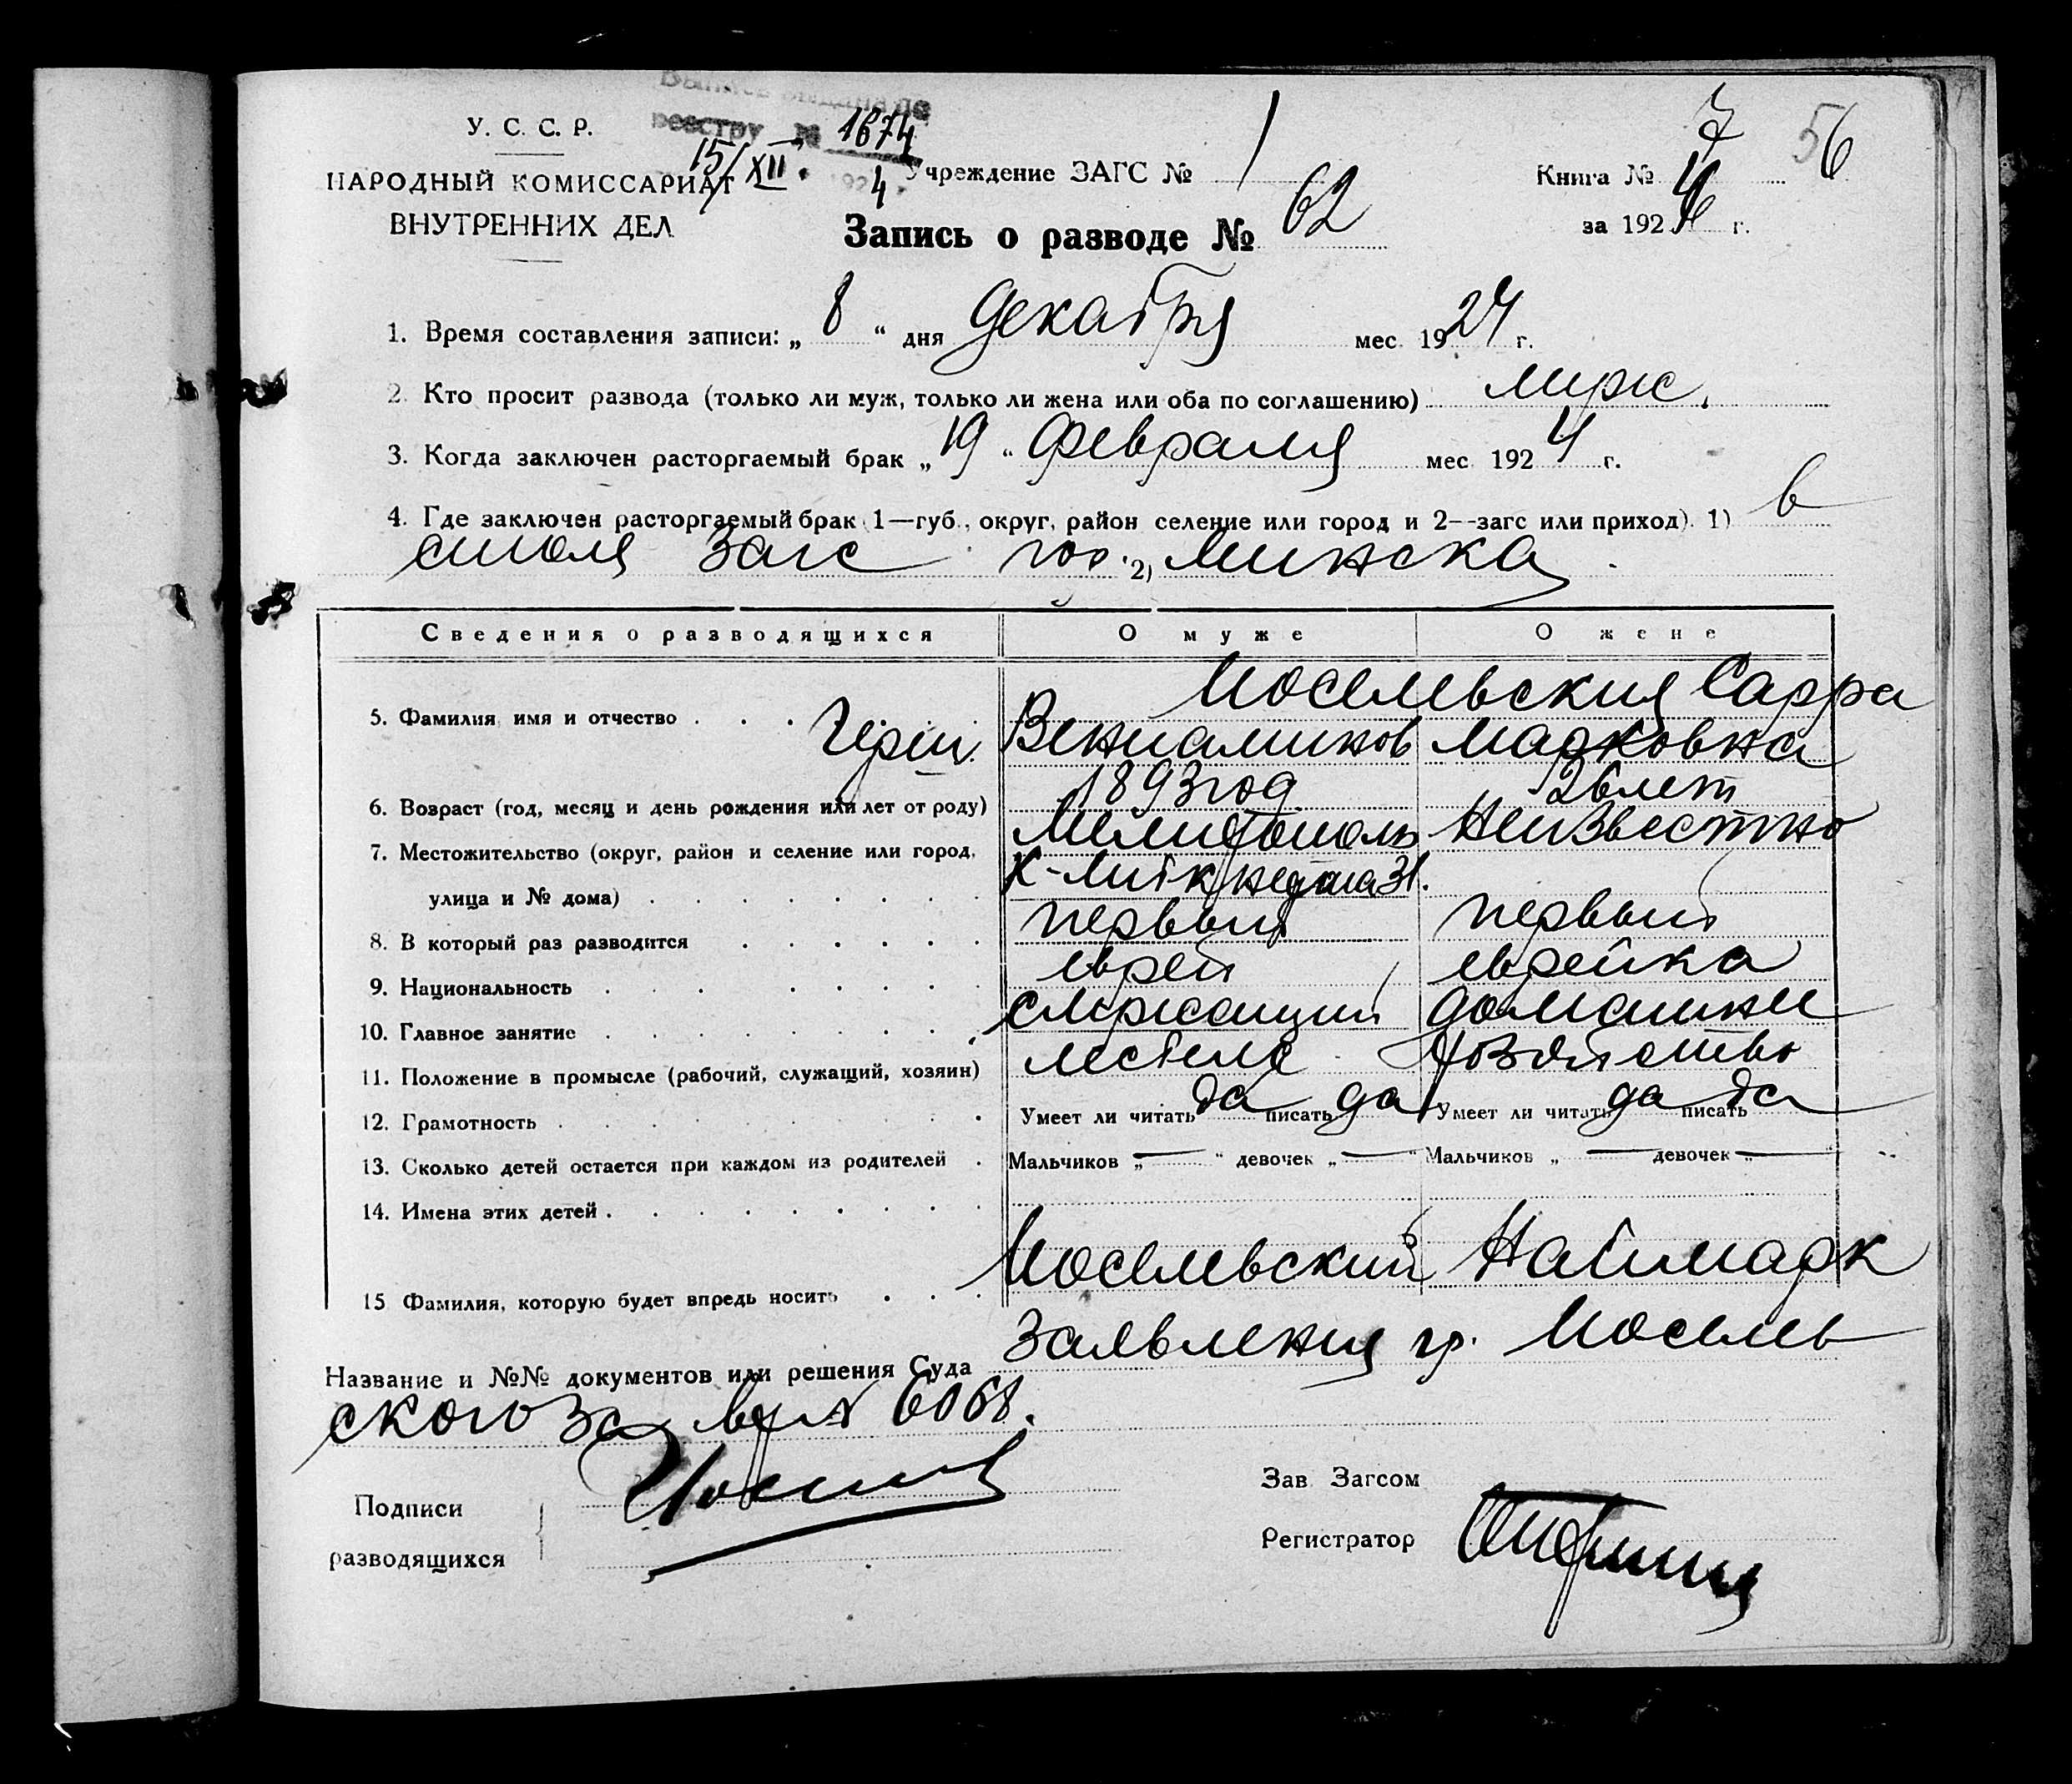 реестру № 1674
15/XII 1924
7 56
У. С. С. Р.
НАРОДНЫЙ КОМИССАРИАТ
ВНУТРЕННИХ ДЕЛ
Учреждение ЗАГС № 1
Книга №
за 192 г.
Запись о разводе № 62
1. Время составления записи: „ 8 “ дня декабря мес. 1924 г.
2. Кто просит развода (только ли муж, только ли жена или оба по соглашению) муж.
3. Когда заключен расторгаемый брак „ 19 “ февраля мес. 1924 г.
4. Где заключен расторгаемый брак (1—губ., округ, район селение или город и 2—загс или приход). 1) в
столе Загс гор. 2) Минска
Сведения о разводящихся О муже О жене
Иоселевский Сарра
5. Фамилия, имя и отчество . . . Вениаминов Марковна
6. Возраст (год, месяц и день рождения или лет от роду) 1893 год 26 лет
7. Местожительство (округ, район и селение или город, Мелитополь Неизвестно
улица и № дома) К-Либкнехта 31.
8. В который раз разводится первый первый
9. Национальность еврей еврейка
10. Главное занятие служащий домашнее
11. Положение в промысле (рабочий, служащий, хозяин) хозяйство
12. Грамотность Умеет ли читать да писать да Умеет ли читать да писать да
13. Сколько детей остается при каждом из родителей . Мальчиков „ — “ девочек „ — “ Мальчиков „ — девочек — “
14. Имена этих детей .
15 Фамилия, которую будет впредь носить . . . Иоселевский Наймарк
Название и №№ документов или решения Суда Заявления гр. Иоселев
ского за вх № 6068.
Подписи
разводящихся
Зав Загсом
Регистратор